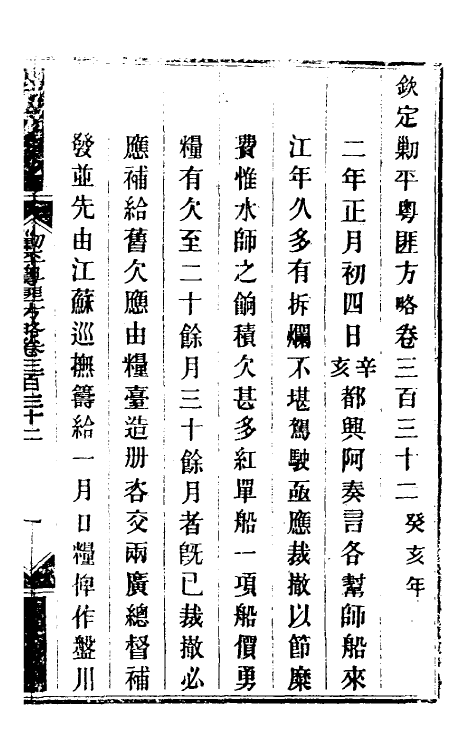 欽定勦平粵匪方略卷三百三十二 癸亥年
二年正月初四日辛亥都興阿奏言各幫師船來
江年久多有拆爛不堪駕駛亟應裁撤以節糜
費惟水師之餉積欠甚多紅單船一項船價勇
糧有欠至二十餘月三十餘月者旣已裁撤必
應補給舊欠應由糧臺造册咨交兩廣總督補
發並先由江蘇巡撫籌給一月口糧俾作盤川
方略卷三百三十二 一